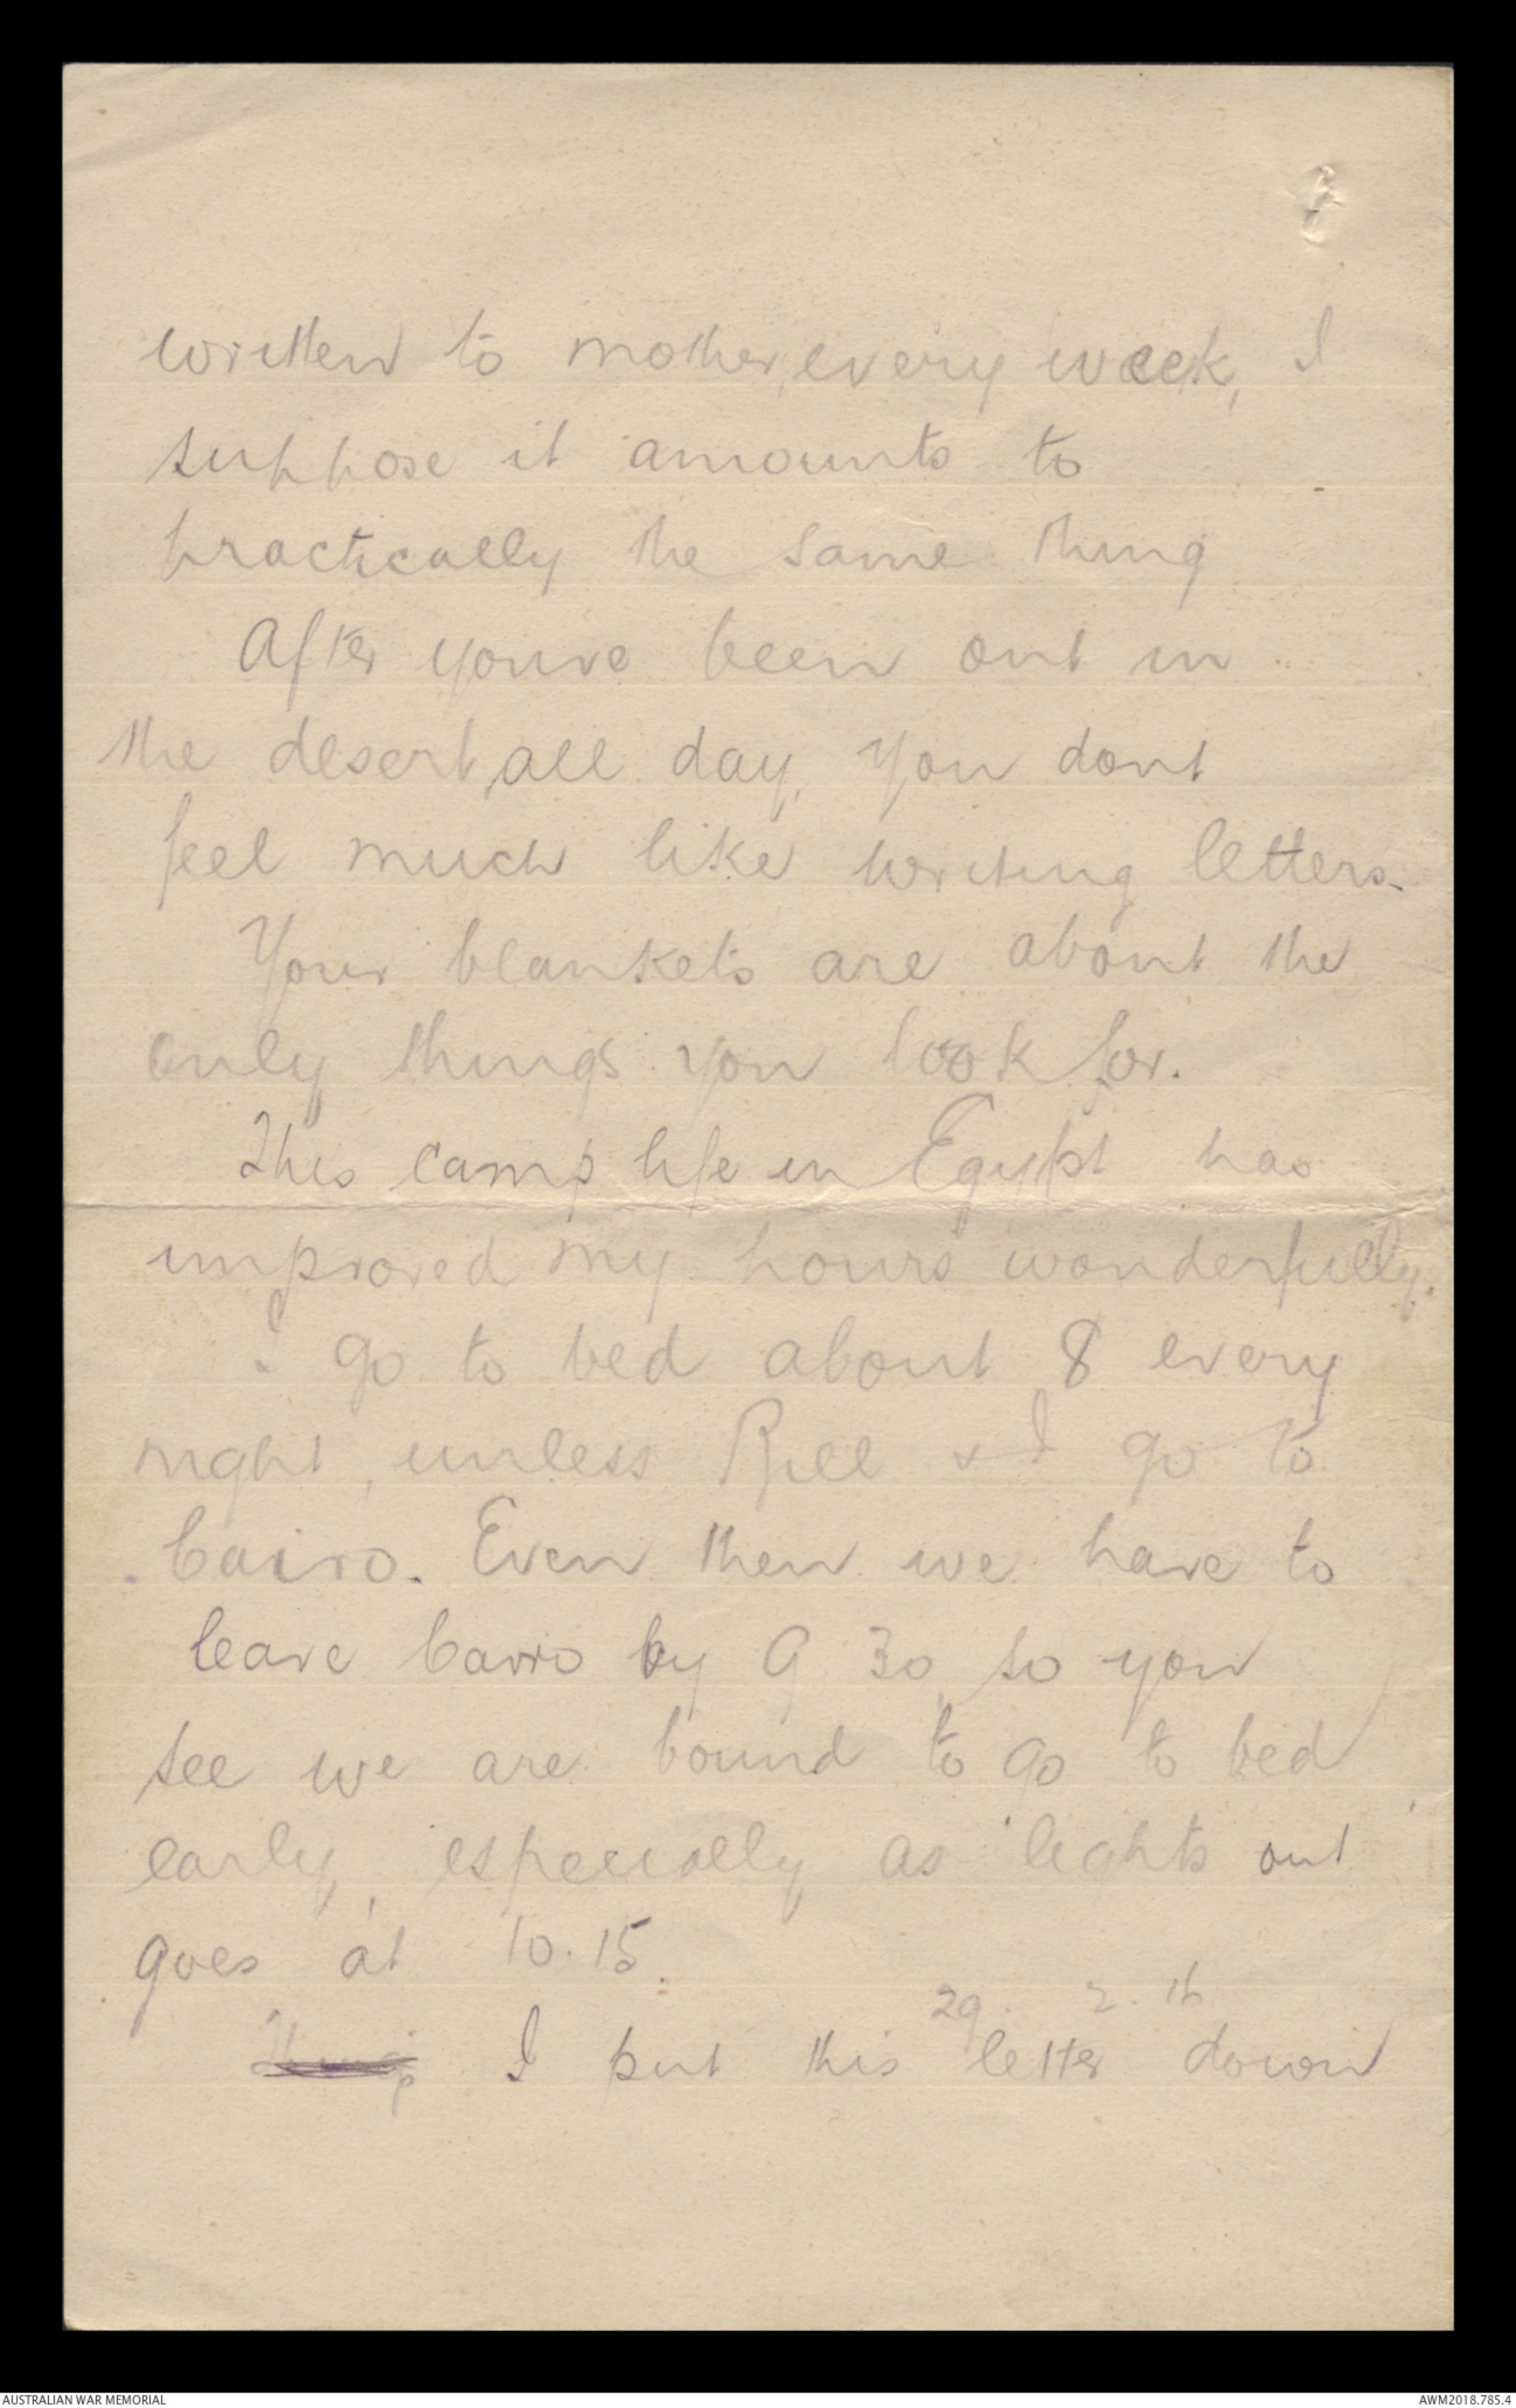 written to mother, every week, I
suppose it amounts to
practically the same thing
After youve been out in
the desert, all day, you dont
feel much like writing letters.
Your blankets are about the
only things you look for.
This camp life in Egypt has
improved my hours wonderfully.
I go to bed about 8 every
night, unless Bill & I go to
Cairo. Even then we have to
leave Cairo by 9 30, so you
see we are bound to go to bed
early, especially as lights out
goes at 10.15.
29. 2. 16
I put this letter down
AUSTRALIAN WAR MEMORIAL
AWM2018.785.4